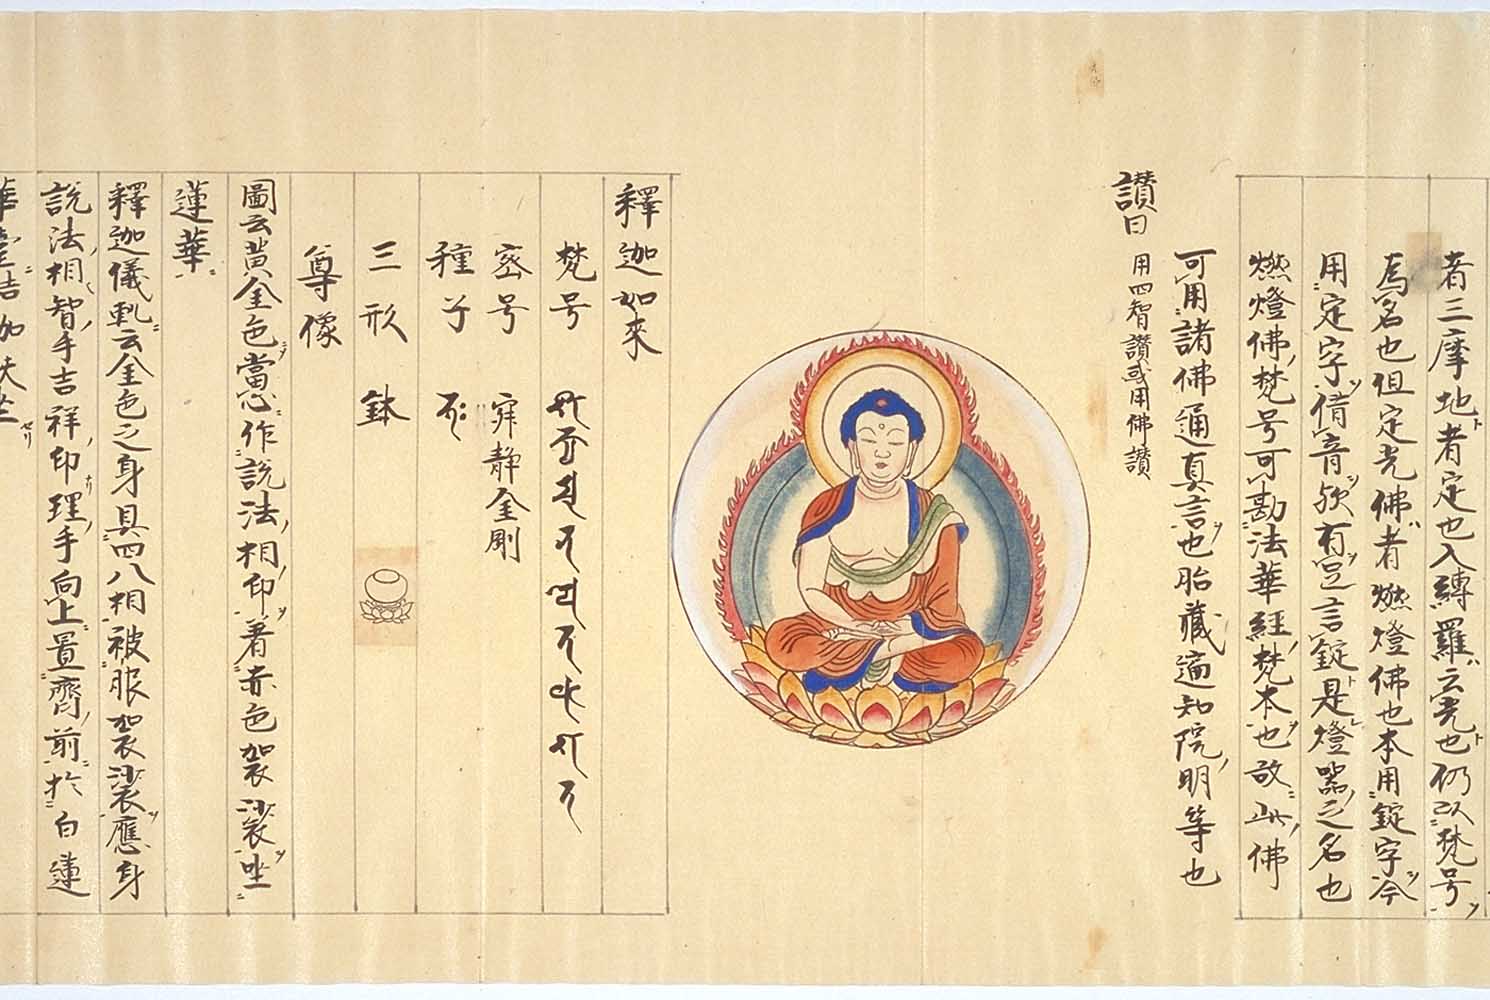 者三摩地者定也入縛羅云光也仍以梵号
為名也但定光佛者燃燈佛也本用錠字今
用定字借音欤有足言錠是燈器之名也
燃燈佛梵号可勘法華經梵本也故此佛
可用諸佛通真言也胎藏遍知院明等也
讃曰 用四智讃或用佛讃
釋迦如來
梵号
密号 寂静金剛
種子
三形 鉢
尊像
圖云黄金色當心作説法相印著赤色袈裟坐
蓮華
釋迦儀軌云金色之身具四八相被服袈裟應身
説法相智手吉祥印理手向上置齊前於白蓮
華臺結加趺坐